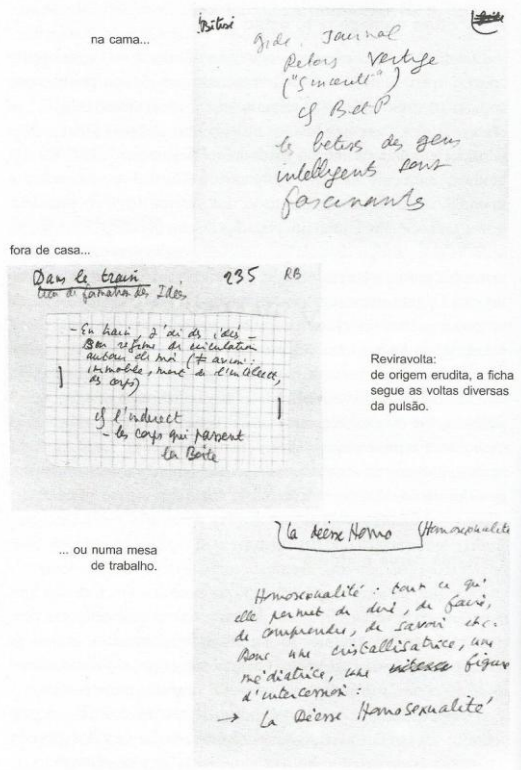 na cama...
Bêtise
Gide. Journal
Retors Vertige
("Sincérité")
cf B et P
les bêtises des gens
intelligents sont
fascinants
fora de casa...
Dans le train 235 RB
de formation des Idées
- En train, j'ai des idées
régime de circulation
autour de moi (≠ avion :
immobile, mort de l'intellect,
des corps)
cf l'indirect
- les corps qui passent
la Boîte
Reviravolta:
de origem erudita, a ficha
segue as voltas diversas
da pulsão.
... ou numa mesa
de trabalho.
La déesse Homo Homosexualité
Homosexualité : tout ce qu'
elle permet de dire, de faire,
de comprendre, de savoir etc.
Donc une cristallisatrice, une
médiatrice, une figure
d'intercession :
→ La Déesse Homosexualité